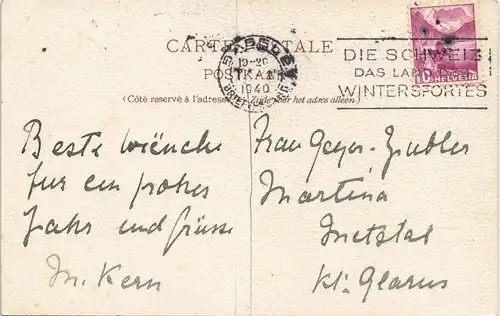 CARTE POSTALE
POSTKARTE
(Côté réservé à l'adresse) (Zijde voor het adres alleen.)
BASEL 2
1940
DIE SCHWEIZ
DAS LAND
WINTERSPORTES
10 HELVETIA
Beste Wünsche
für ein frohes
Jahr und Grüsse
M. Kern
Frau Geyer-Zubler
Martina
Netstal
Kt. Glarus